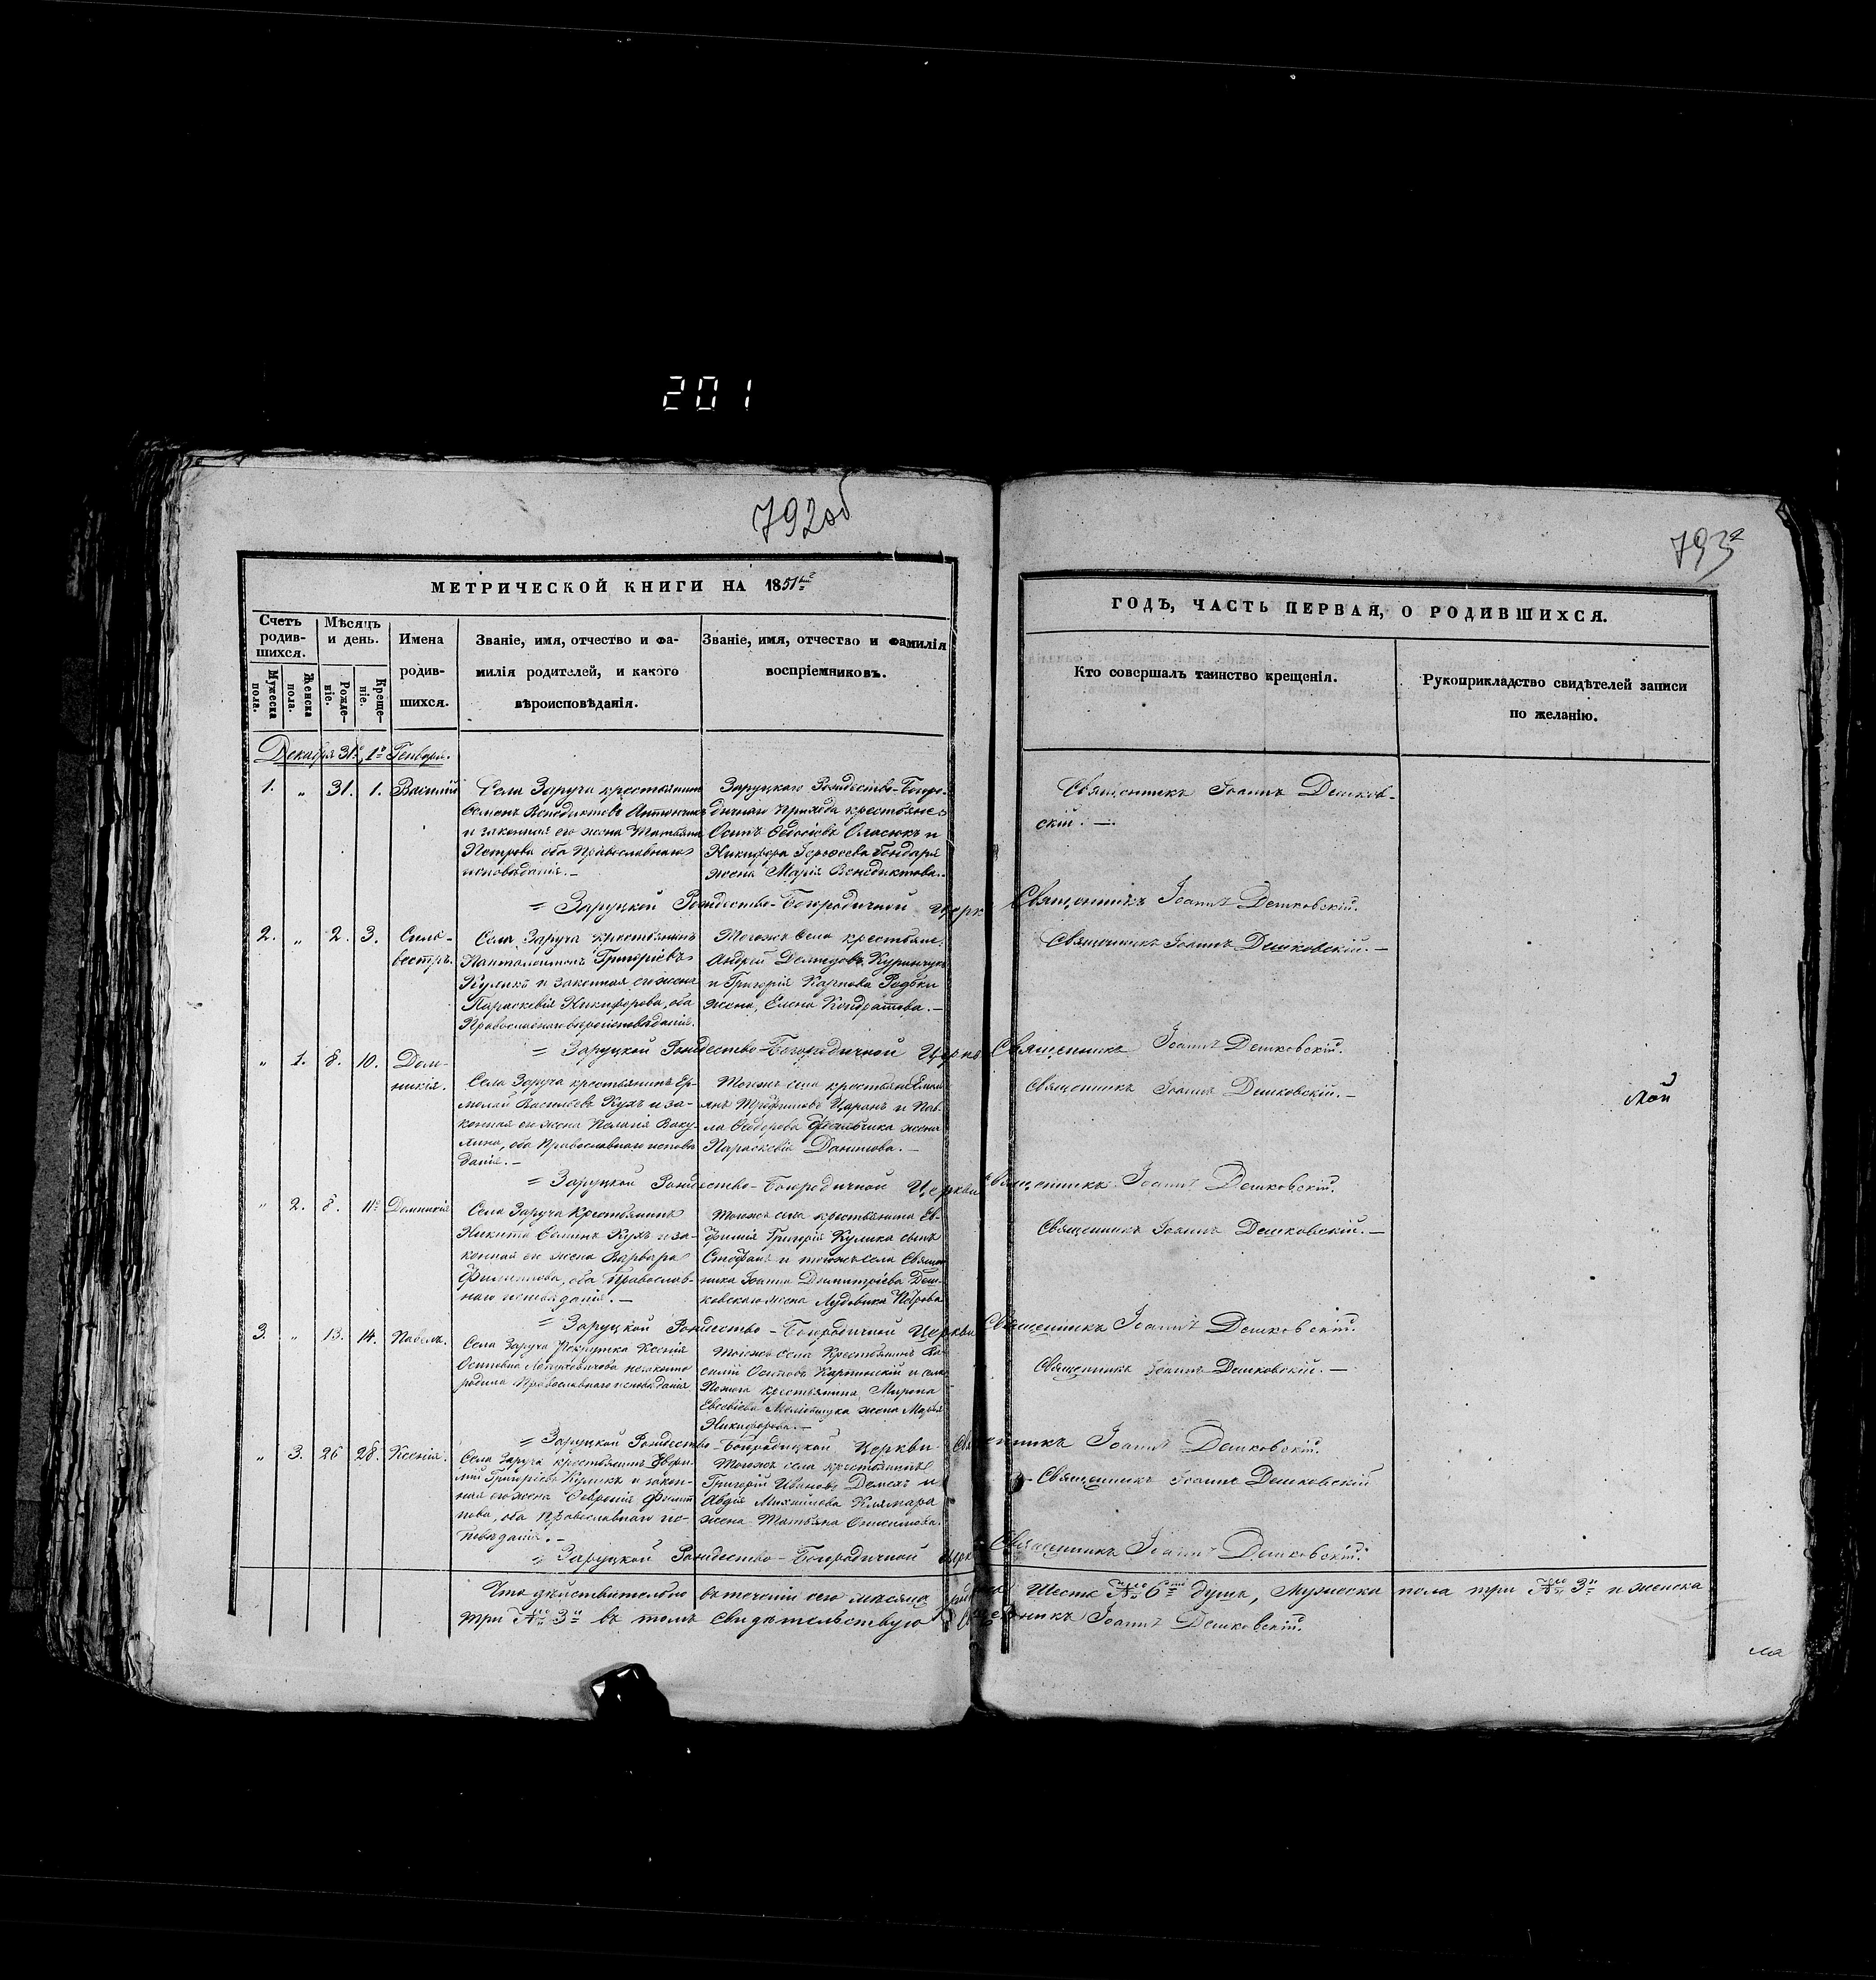 201
792об
793
МЕТРИЧЕСКОЙ КНИГИ НА 1851
ГОДЪ, ЧАСТЬ ПЕРВАЯ, О РОДИВШИХСЯ.
Счетъ родив-
шихся.
Мужеска пола.
Женска пола.
Мѣсяцъ
и день.
Рожде-
ніе.
Креще-
ніе.
Имена
родив-
шихся.
Званіе, имя, отчество и фа-
милія родителей, и какого
вѣроисповѣданія.
Званіе, имя, отчество и фамилія
воспріемниковъ.
Кто совершалъ таинство крещенія.
Рукоприкладство свидѣтелей записи
по желанію.
Декабря 31. 1 Генваря.
1. " 31. 1. Василій
Села Заруча крестьянинъ
Семенъ Венедиктовъ
и законная его жена Татьяна
Петрова оба Православнаго
исповѣданія. —
Заруцкаго Рождество-Богоро-
дичнаго Прихода крестьяне
Осипъ Ѳедосіевъ Власюкъ и
Никифора Бондаря
жена Марія Венедиктова.
Священникъ Іоаннъ Дешков-
скій. —
= Заруцкой Рождество-Богородичной Церкви Священникъ Іоаннъ Дешковскій.
2. " 2. 3. Силь-
вестръ.
Села Заруча крестьянинъ
Пантелеимонъ Григоріевъ
Куликъ и законная его жена
Параскевія Никифорова, оба
Православнаго вѣроисповѣданія.
Тогожъ села крестьяне
Андрей Демидовъ
и Григорія Карпова
жена, Елена Кондратова. —
Священникъ Іоаннъ Дешковскій. —
= Заруцкой Рождество-Богородичной Церкви Священникъ Іоаннъ Дешковскій.
" 1. 8. 10. Дом-
никія.
Села Заруча крестьянинъ Ер-
молай Васильевъ Кухъ и за-
конная его жена Пелагія Ваку-
лина, оба Православнаго исповѣ
данія. —
Тогожъ села крестьяне
Царанъ и Пав-
ла Ѳедорова жена
Параскевія Данилова. —
Священникъ Іоаннъ Дешковскій. —
= Заруцкой Рождество-Богородичной Церкви Священникъ Іоаннъ Дешковскій.
" 2. 8. 11. Домникія
Села Заруча Крестьянинъ
Никита Кухъ и за-
конная его жена Варвара
Филиппова, оба Православ-
наго исповѣданія. —
Тогожъ села крестьянина Ев-
фимія Григорія Кулика сынъ
Стефанъ и тогожъ села Священ
ника Іоанна Димитріева Деш-
ковскаго жена Лудовика Петрова
Священникъ Іоаннъ Дешковскій. —
= Заруцкой Рождество-Богородичной Церкви Священникъ Іоаннъ Дешковскій.
3. " 13. 14. Павелъ.
Села Заруча Рекрутка Ксенія
Осиповна незаконно
родила Православнаго исповѣданія
Тогожъ села Крестьянинъ Ва-
силій Осиповъ и села
крестьянина Мирона
Евсевіева жена Марія
Никифорова. —
Священникъ Іоаннъ Дешковскій. —
= Заруцкой Рождество-Богородицкой Церкви Священникъ Іоаннъ Дешковскій.
" 3. 26 28. Ксенія.
Села Заруча крестьянинъ Евфи-
мій Григоріевъ Куликъ и закон-
ная его жена Февронія Филип
пова, оба Православнаго ис-
повѣданія. —
Тогожъ села крестьянинъ
Григорій Ивановъ и
Авдія Михайлова
жена Татьяна Онисимова.
Священникъ Іоаннъ Дешковскій
= Заруцкой Рождество-Богородичной Церкви Священникъ Іоаннъ Дешковскій.
Что дѣйствительно въ теченіи сего мѣсяца Шесть 6 душъ, Мужеска пола три 3 и женска
три 3 въ томъ свидѣтельствую Священникъ Іоаннъ Дешковскій.